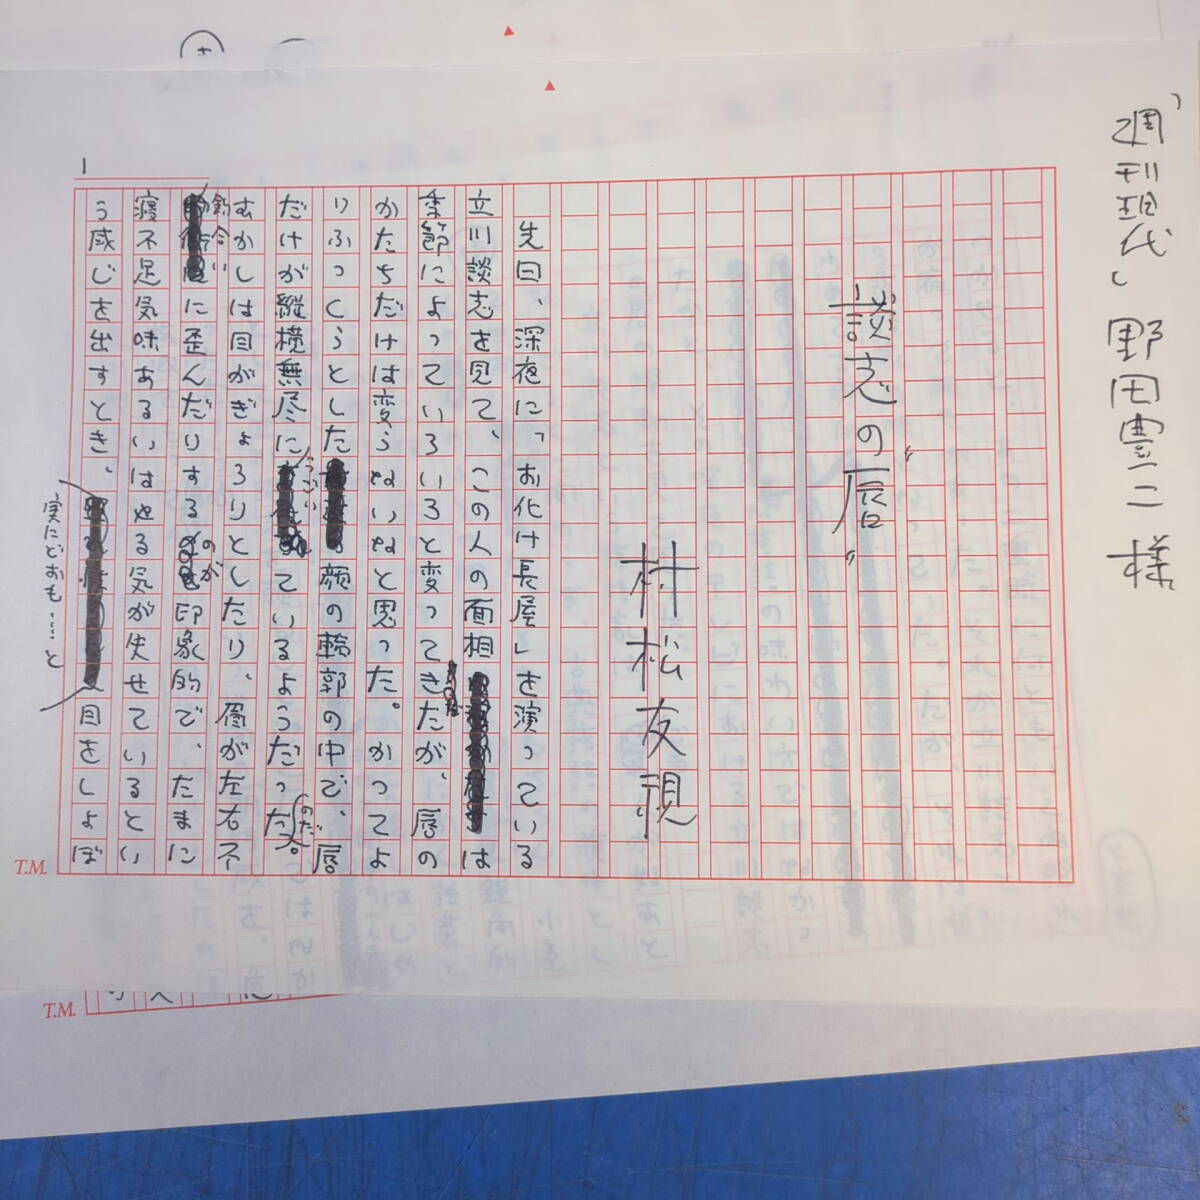 「週刊現代」野田豊二様
談志の唇"
村松友視
先日、深夜に「お化け長屋」を演っている
立川談志を見て、この人の面相は
季節によっていろいろと変ってきたが、唇の
かたちだけは変らないなと思った。かつてよ
りふっくらとした顔の輪郭の中で、唇
だけが縦横無尽にうごいているようだった
のだ。
むかしは目がぎょろりとしたり、眉が左右不
釣合いに歪んだりするのが印象的で、たまに
寝不足気味あるいはやる気が失せているとい
う感じを出すとき、実にどおも……と目をしょぼ
1
T.M.
T.M.